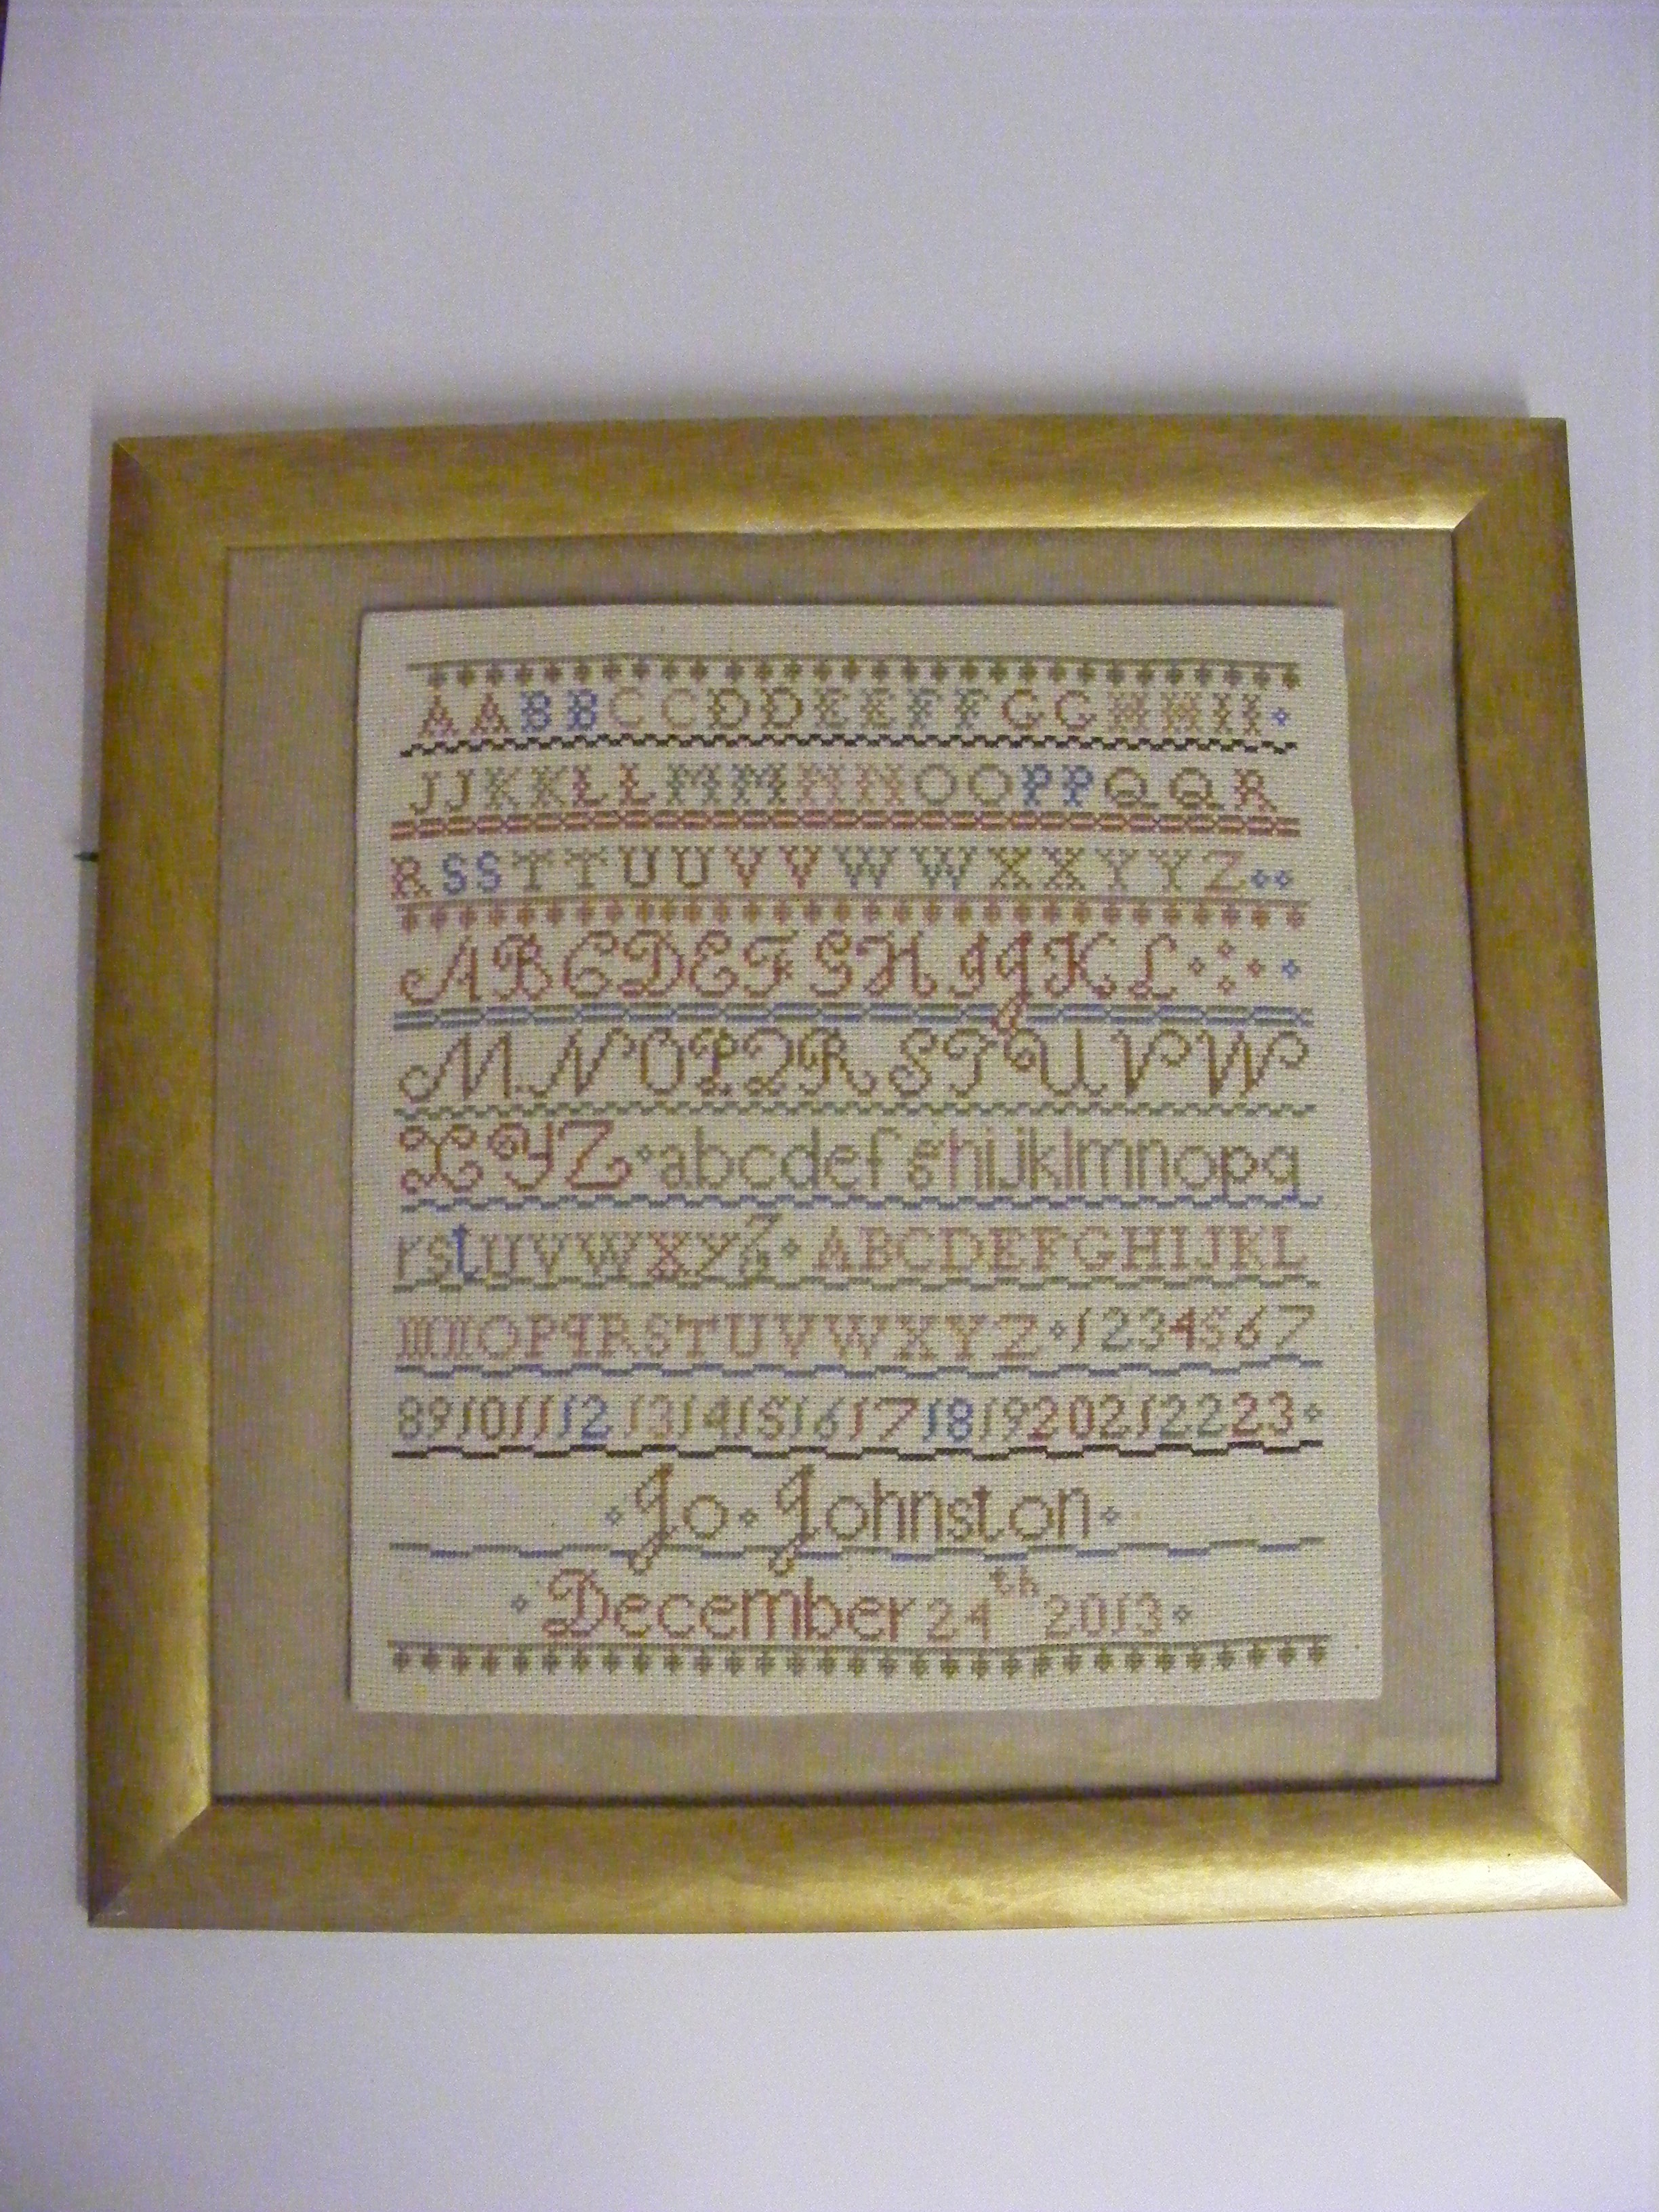 AABBCCDDEEFFGGHHII
JJKKLLMMNNOOPPQQR
RSSTTUUVVWWXXYYZ
ABCDEFGHIJKL
MNOPQRSTUVW
XYZabcdefghijklmnopq
rstuvwxyzABCDEFGHIJKL
MNOPqRSTUVWXYZ1234567
891011121314151617181920212223
Jo Johnston
December 24th 2013